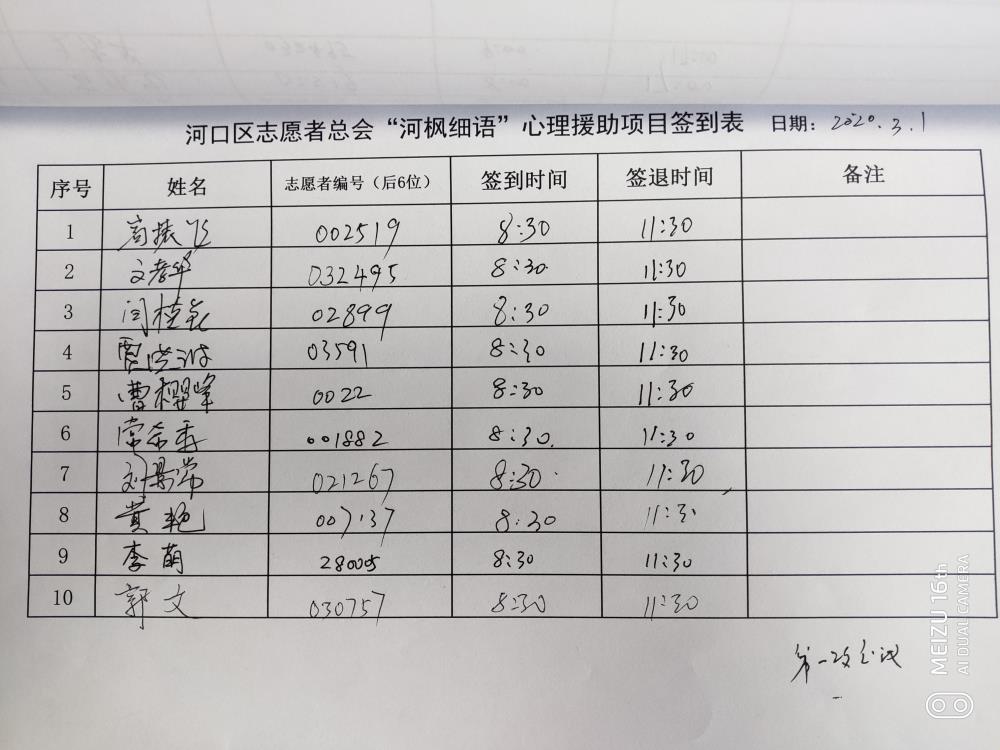 河口区志愿者总会“河枫细语”心理援助项目签到表 日期：2020.3.1
序号 姓名 志愿者编号（后6位） 签到时间 签退时间 备注
1 高振飞 002519 8:30 11:30
2 文孝华 032495 8:30 11:30
3 闫桂花 02899 8:30 11:30
4 贾洪波 03591 8:30 11:30
5 曹樱峰 0022 8:30 11:30
6 常奈香 001882 8:30 11:30
7 刘景常 021267 8:30 11:30
8 黄艳 007137 8:30 11:30
9 李萌 28005 8:30 11:30
10 郭文 030757 8:30 11:30
第一次会议
MEIZU 16th
AI DUAL CAMERA